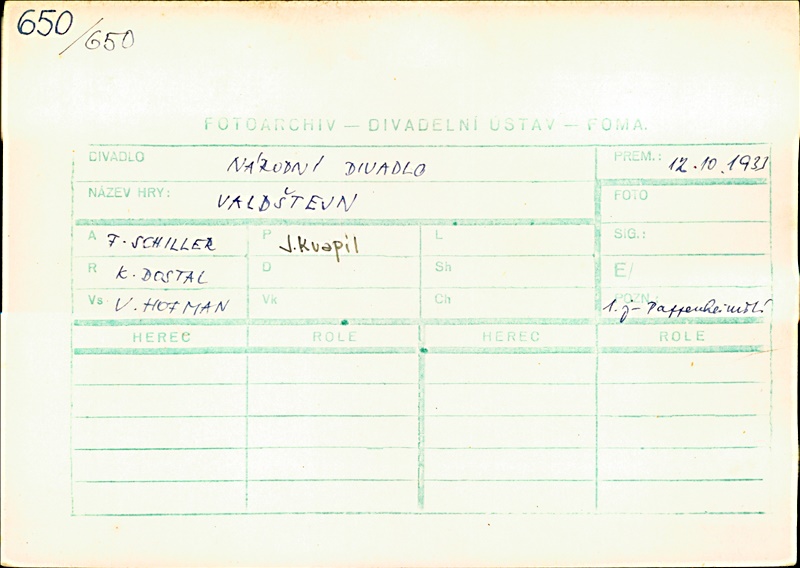 650/650
FOTOARCHIV — DIVADELNÍ ÚSTAV — FOMA.
DIVADLO NÁRODNÍ DIVADLO PREM.: 12.10.1931
NÁZEV HRY: VALDŠTEJN FOTO
A F. SCHILLER P J. Kvapil L SIG.:
R K. DOSTAL D Sh E/
Vs V. HOFMAN Vk Ch POZN. 1. j - Pappenheimští
HEREC ROLE HEREC ROLE